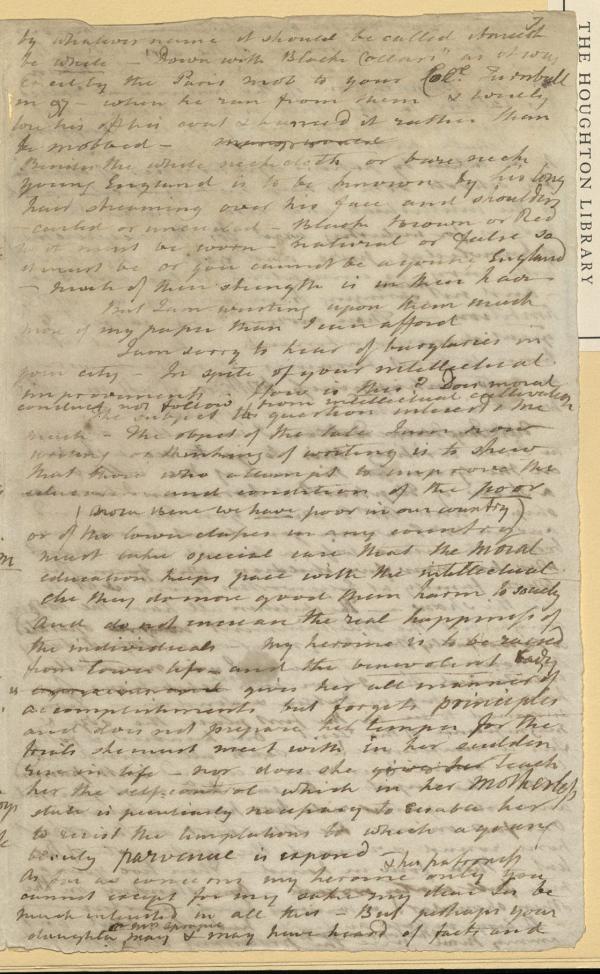 7
by whatever name it should be called it must
be white – "Down with Black Collars" as it was
cried by the Paris mob to your Col.^l Turnbull
in 97 – when he ran from them & wisely
tore his off his coat & burned it rather than
be mobbed –
Besides the white neckcloth or bare neck
young England is to be known by his long
hair streaming over his face and shoulders
– curled or uncurled – Black Brown or Red
it must be worn – natural or false so
it must be or you cannot be a young England
– much of their strength is in their hair
But I am wasting upon them much
more of my paper than I can afford
I am sorry to hear of burglaries in
your city – In spite of your intellectual
improvements How is this? Does moral
conduct not follow from intellectual cultivation
The subject the question interests me
much – The object of the tale I am now
writing or thinking of writing is to shew
that those who attempt to improve the
education and condition of the poor
(now were we have poor in our country)
or of the lower classes in any country
must take especial care that the moral
education keeps pace with the intellectual
else they do more good them harm to society
and do not increase the real happiness of
the individuals – my heroine is to be raised
from lower life – and the benevolent Lady
gives her all manner of
accomplishments but forgets principles
and does not prepare her temper for the
trials she must meet with in her sudden
rise in life – nor does she give her teach
her the self-control which in her Motherless
state is peculiarly necessary to enable her
to resist the temptations to which a young
beauty parvenue is exposed & her patroness
As far as concerns my heroine only you
cannot except for my sake my dear Sir be
much interested in all this – But perhaps your
daughter or Mrs Sprague may & may have heard of facts and
THE HOUGHTON LIBRARY